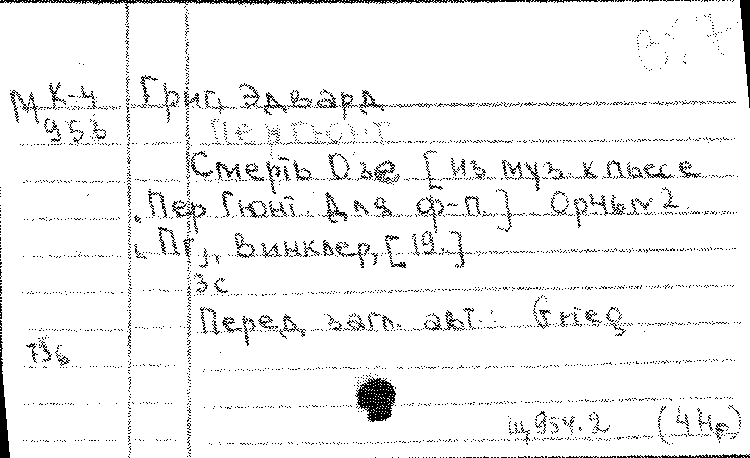 В:7
М К-4 Григ, Эдвард
956 Пер Гюнт
Смерть Озе [из муз. к пьесе
"Пер Гюнт". Для ф-п.] Op.46 № 2.
Пг., Винклер, [19.]
3с
Перед загл. авт.: Grieg
736
щ 954.2 (4 Нр)